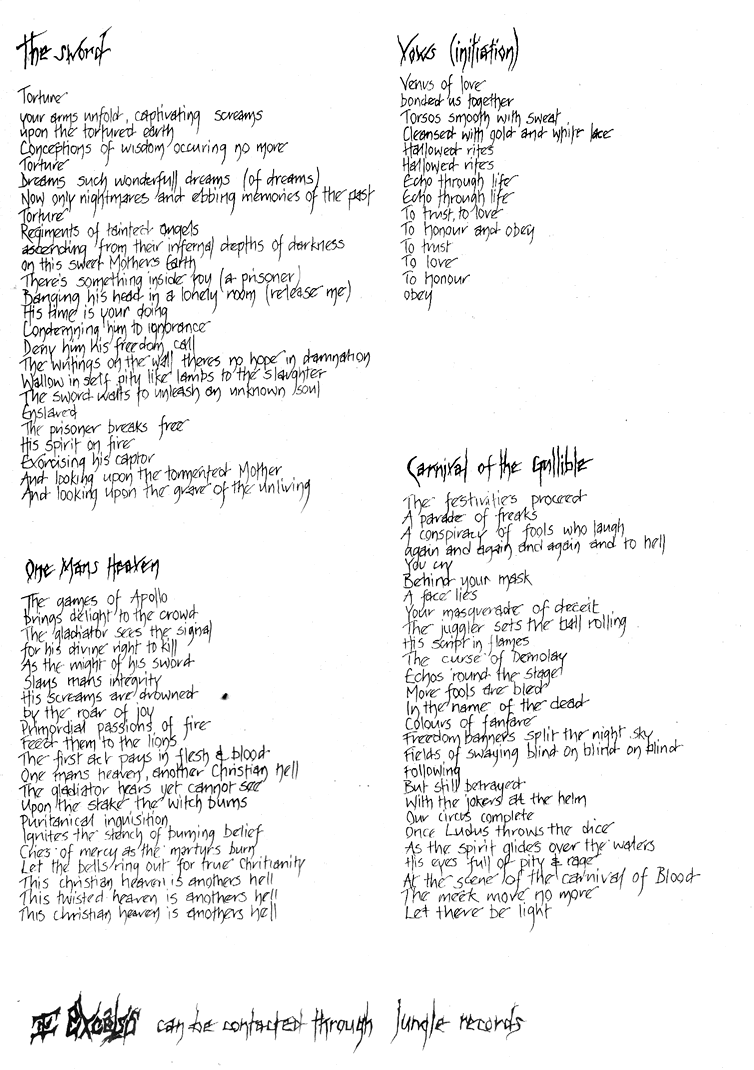 The sword
Torture
your arms unfold, captivating screams
upon the tortured earth
Conceptions of wisdom occuring no more
Torture
Dreams such wonderfull dreams (of dreams)
Now only nightmares and ebbing memories of the past
Torture
Regiments of tainted angels
ascending from their infernal depths of darkness
on this sweet Mothers Earth
There's something inside you (a prisoner)
Banging his head in a lonely room (release me)
His time is your doing
Condemning him to ignorance
Deny him his freedom call
The writings on the wall theres no hope in damnation
Wallow in self pity like lambs to the slaughter
The sword waits to unleash an unknown soul
Enslaved
The prisoner breaks free
His spirit on fire
Exorcising his captor
And looking upon the tormented Mother
And looking upon the grave of the unliving
One Mans Heaven
The games of Apollo
brings delight to the crowd
The gladiator sees the signal
for his divine right to kill
As the might of his sword
Slays mans integrity
His screams are drowned
by the roar of joy
Primordial passions of fire
Feed them to the lions
The first act pays in flesh & blood
One mans heaven, another Christian hell
The gladiator hears yet cannot see
Upon the stake the witch burns
Puritanical inquisition
Ignites the stench of burning belief
Cries of mercy as the martyrs burn
Let the bells ring out for true Chritianity
This christian heaven is anothers hell
This twisted heaven is anothers hell
This christian heaven is anothers hell
Vows (initiation)
Venus of love
bonded us together
Torsos smooth with sweat
Cleansed with gold and white lace
Hallowed rites
Hallowed rites
Echo through life
Echo through life
To trust, to love
To honour and obey
To trust
To love
To honour
obey
Carnival of the Gullible
The festivities proceed
A parade of freaks
A conspiracy of fools who laugh
again and again and again and to hell
You cry
Behind your mask
A face lies
Your masquerade of deceit
The juggler sets the ball rolling
His script in flames
The curse of Demolay
Echos 'round the stage
More fools are bled
In the name of the dead
Colours of fanfare
Freedom banners split the night sky
Fields of swaying blind on blind on blind
Following
But still betrayed
With the jokers at the helm
Our circus complete
Once Ludus throws the dice
As the spirit glides over the waters
His eyes full of pity & rage
At the scene of the carnival of Blood
The meek move no more
Let there be light
In Excelsis can be contacted through Jungle records